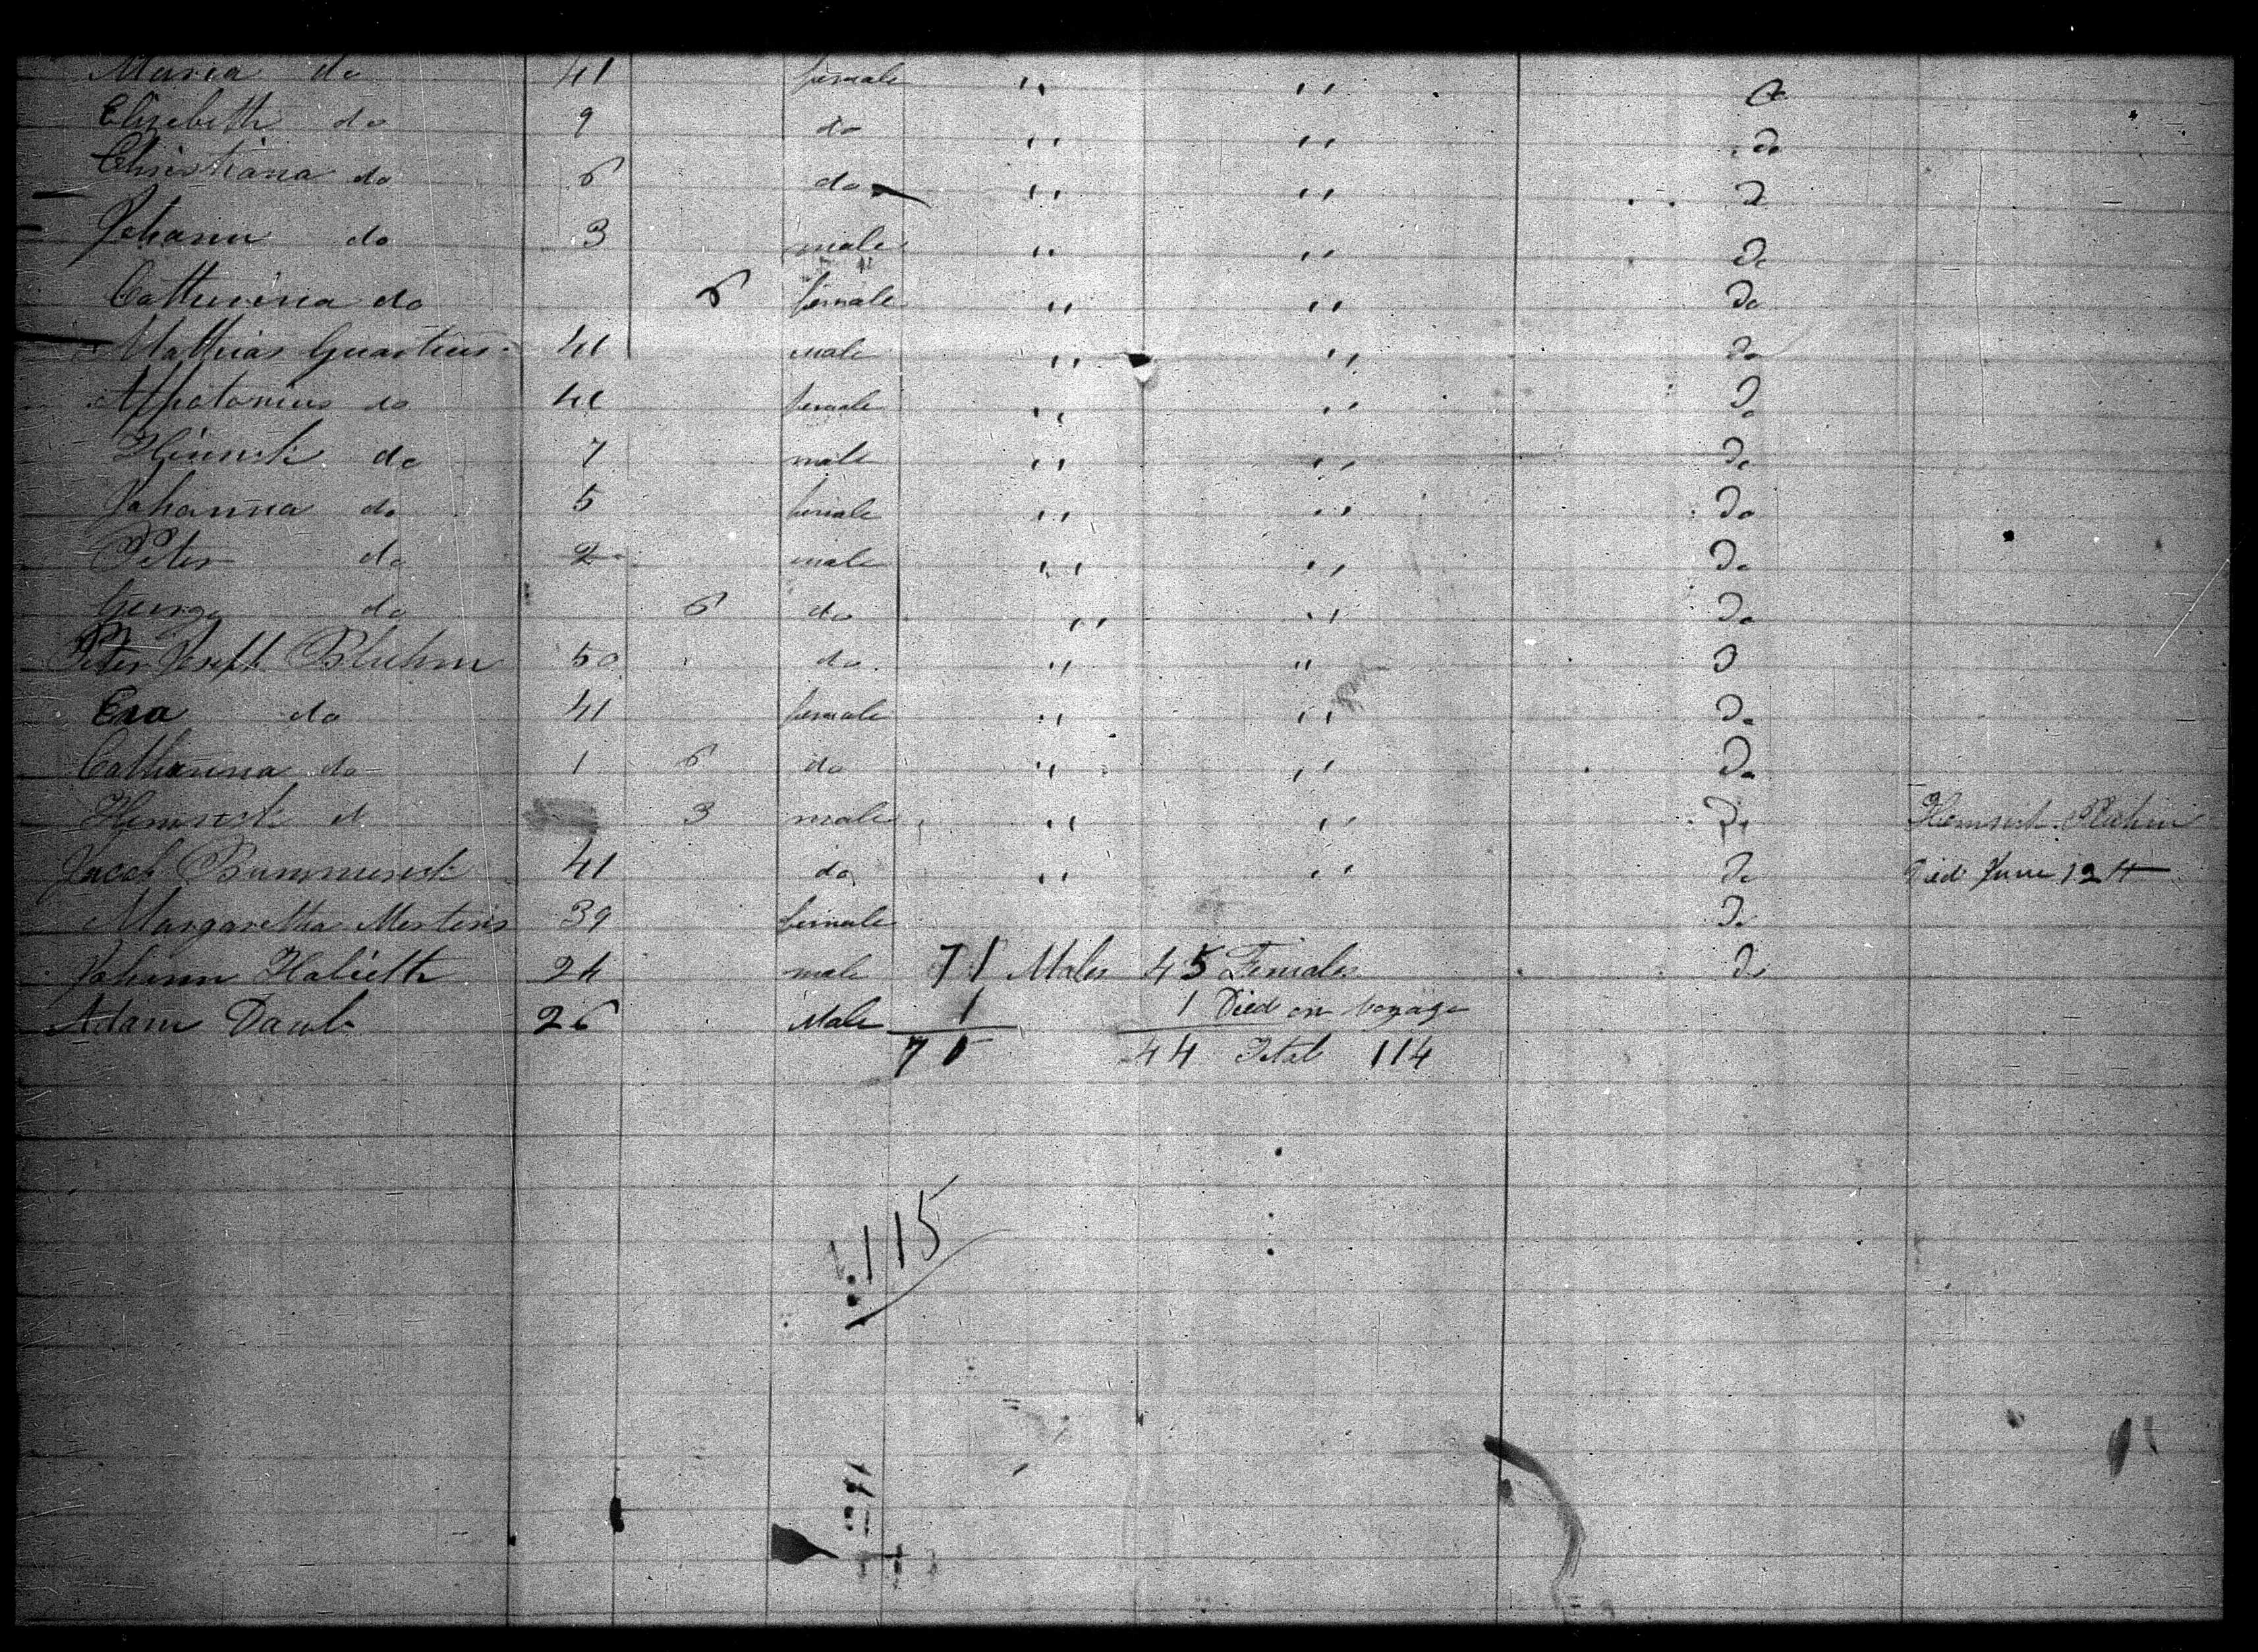 Maria do 41 female ,, ,, Do
Elisebeth do 9 do ,, ,, Do
Christiana do 6 do ,, ,, Do
Johann do 3 male ,, ,, Do
Catherina do 6 female ,, ,, Do
Mathias 41 male ,, ,, Do
do 41 female ,, ,, Do
do 7 male ,, ,, Do
Johanna do 5 female ,, ,, Do
Peter do 2 male ,, ,, Do
George do 6 do ,, ,, Do
Peter Joseph Bluhm 50 do ,, ,, D
Eva do 41 female ,, ,, Do
Catharina do 1 6 do ,, ,, Do
d 3 male ,, ,, Do Bluhm
Jacob 41 do ,, ,, Do Died June 12th
Margaretha Mertens 39 female Do
Johann 24 male 71 Males 45 Females Do
Adam Daub 26 Male 1 1 Died on voyage
70 44 Total 114
115